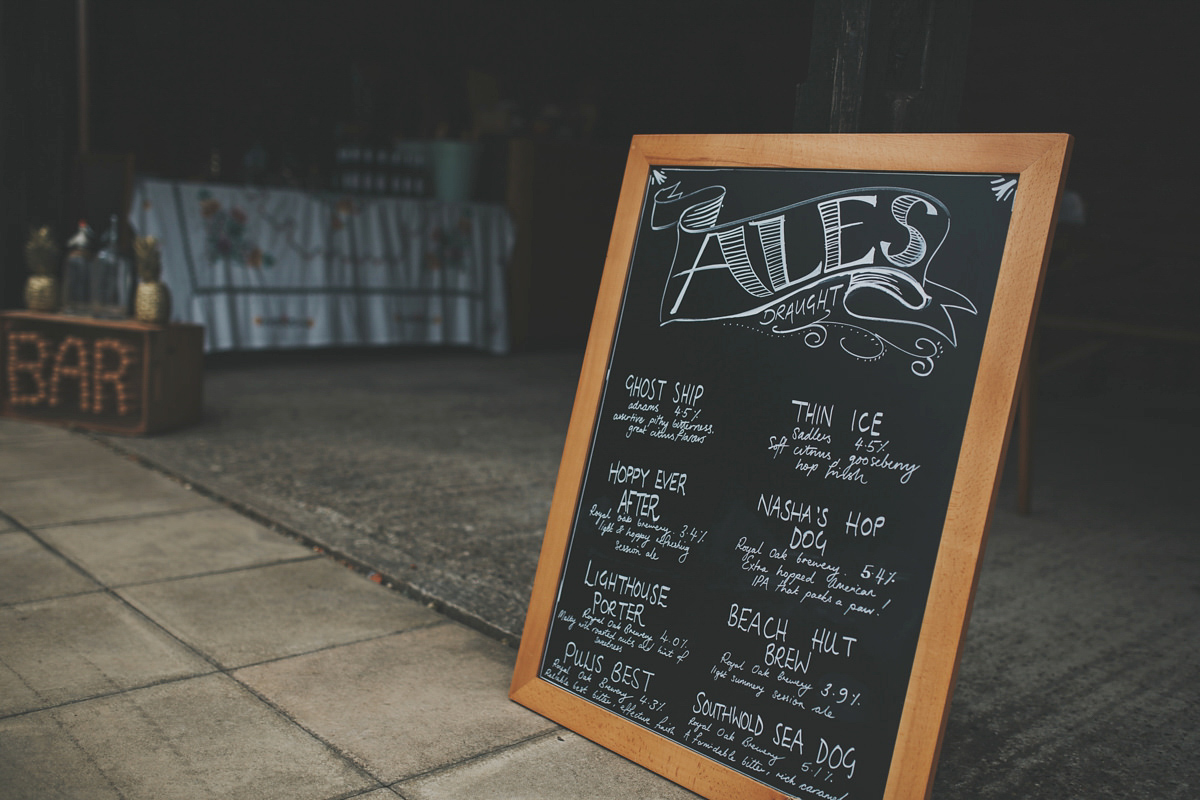 BAR
ALES
DRAUGHT
GHOST SHIP
adnams 4.5%
assertive pithy bitterness,
great citrus flavors
HOPPY EVER
AFTER
Royal oak brewery. 3.4%
light & hoppy refreshing
Session ale
LIGHTHOUSE
PORTER
Royal Oak Brewery 4.0%
Malty with roasted nuts and hint of
Sweetness
PULLS BEST
Royal Oak Brewery 4.3%
Reliable best bitter, effective finish
THIN ICE
Sadlers 4.5%
Soft citrus, gooseberry
hop finish
NASHA'S HOP
DOG
Royal Oak brewery. 5.4%
Extra hopped American
IPA that packs a paw.!
BEACH HUT
BREW
Royal Oak Brewery 3.9%
light summery session ale
SOUTHWOLD SEA DOG
Royal Oak Brewery 5.1%
A formidable bitter, rich caramel